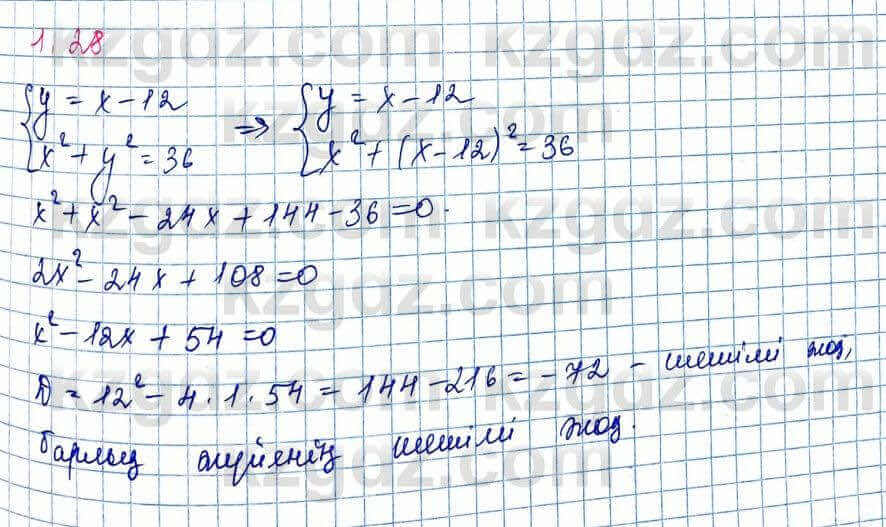 1.28
{y = x - 12
{x² + y² = 36 ⇒ {y = x - 12
{x² + (x - 12)² = 36
x² + x² - 24x + 144 - 36 = 0.
2x² - 24x + 108 = 0
x² - 12x + 54 = 0
D = 12² - 4 · 1 · 54 = 144 - 216 = -72 - шешімі жоқ,
барлық жүйенің шешімі жоқ.
kzgdz.com